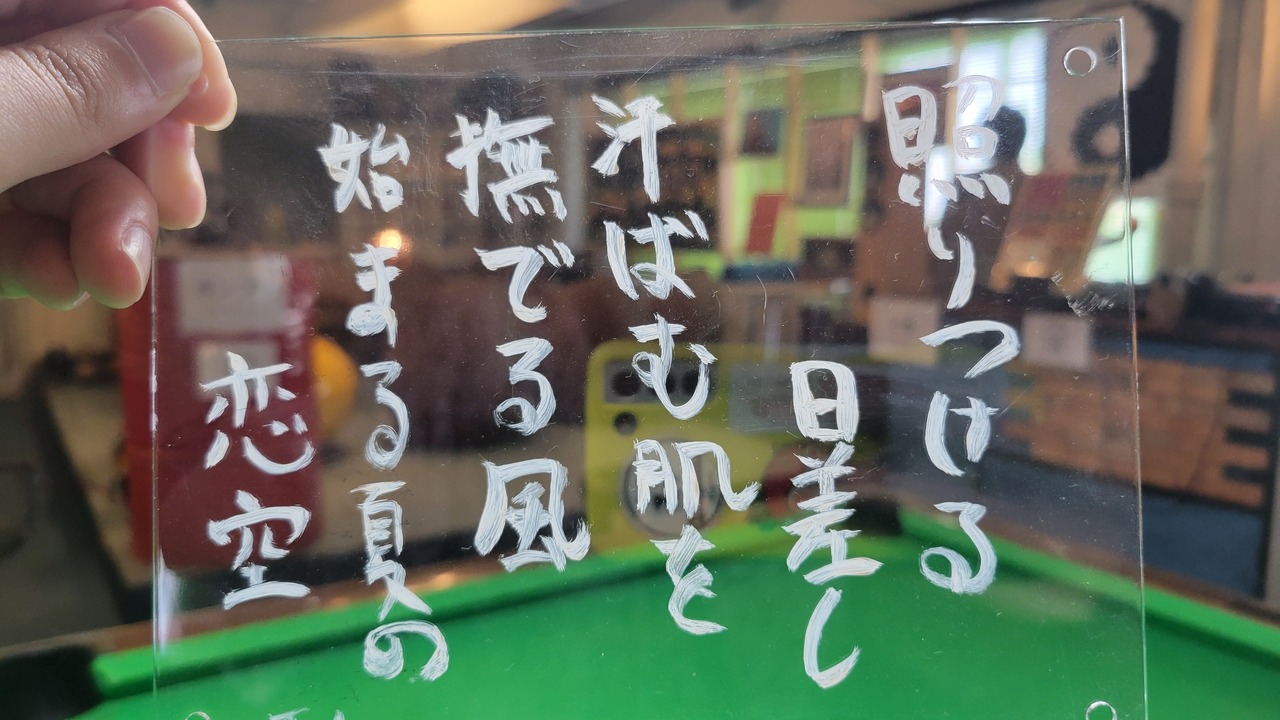 照りつける
日差し
汗ばむ肌と
撫でる風
始まる夏の
恋空